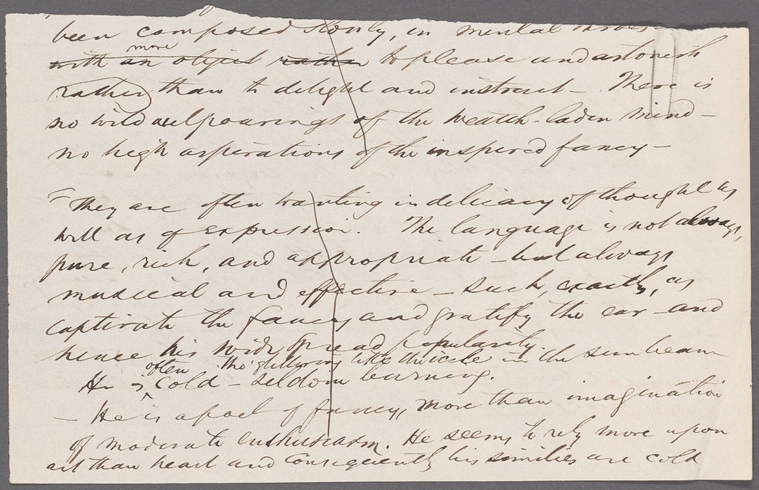 been composed slowly, in mental
more
with an object rather to please and astonish
rather than to delight and instruct – There is
no wild outpourings of the wealth-laden mind –
no high aspirations of the inspired fancy –
They are often wanting in delicacy of thought as
well as of expression. The language is not always,
pure, rich, and appropriate – but always
musical and effective – such, exactly, as
captivate the fancy and gratify the ear – and
hence his wide spread popularity.
often tho' glittering like the icicle in the sun beam
He is cold – seldom burning.
– He is a poet of fancy, more than imagination
of moderate enthusiasm. He seems to rely more upon
art than heart and consequently his similies are cold